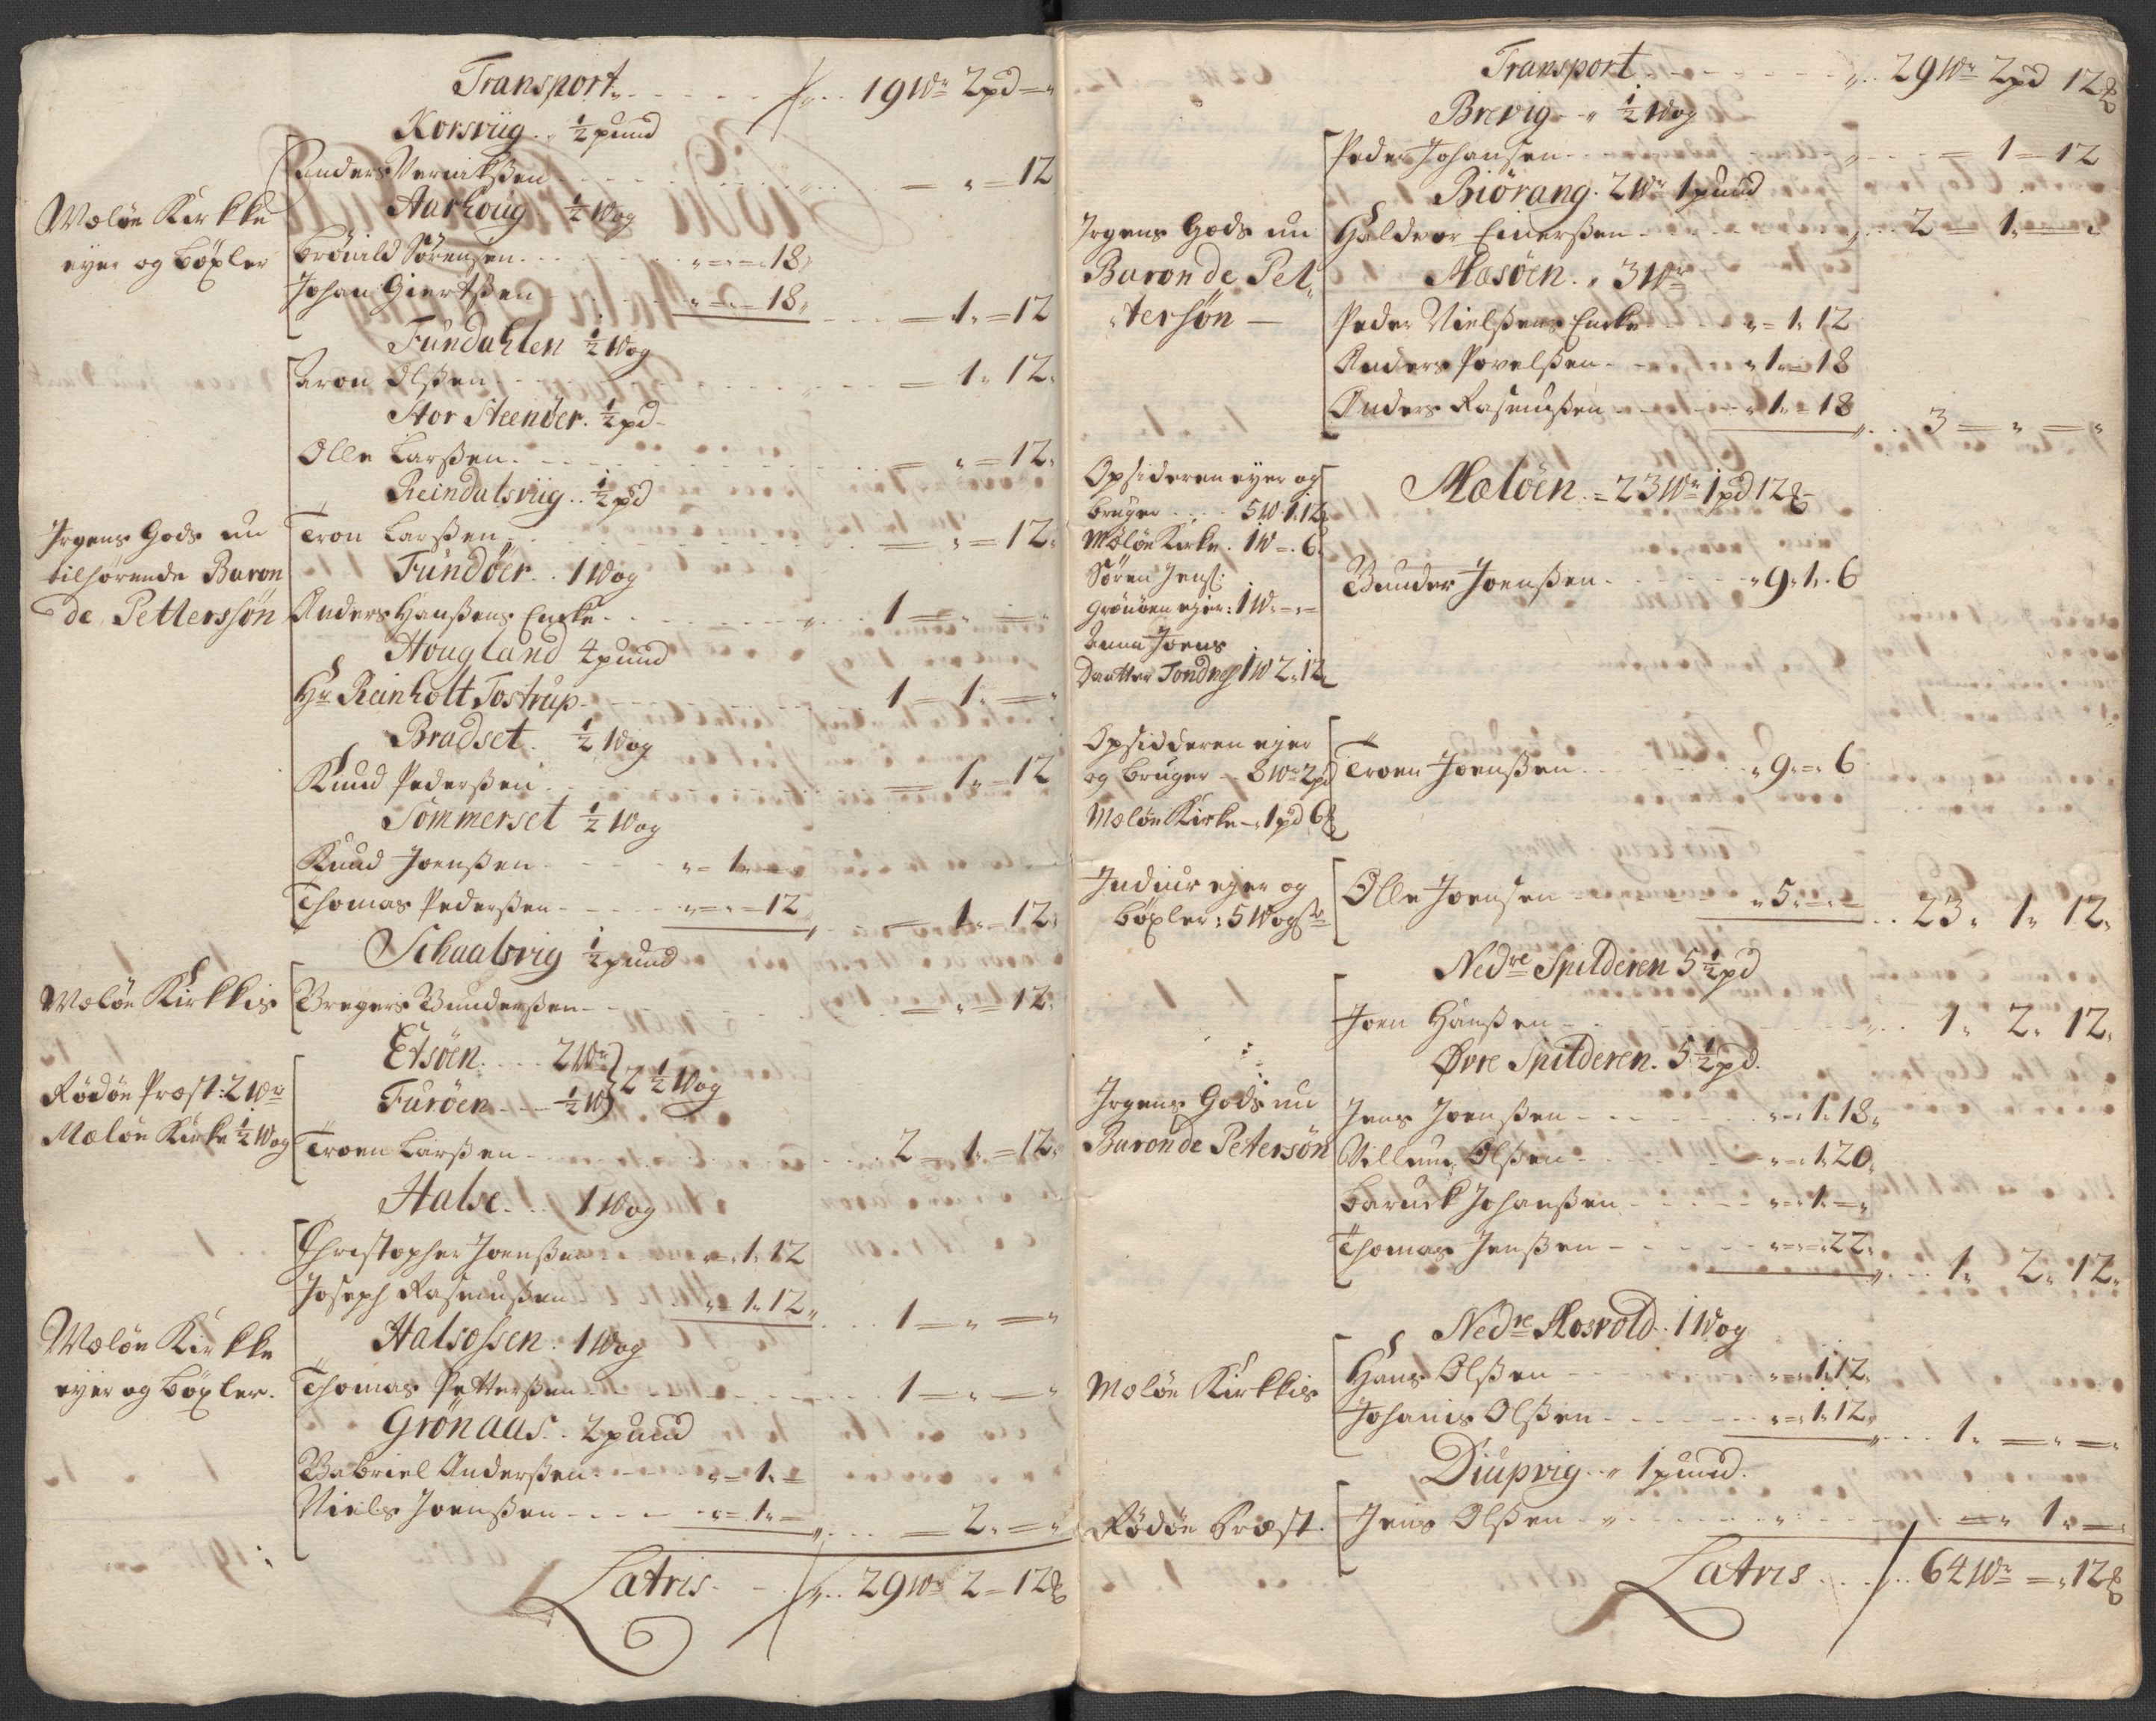 Transport - - - - - 19 Wr 2 pd - "
Korsviig . ½ pund
Anders Verniksen - - - - - = " = 12
Aarhoug . ½ Wog
Mæløe Kirkke
eyer og bøxler
Brönild Sørensen - - - " = " = 18
Johan Giertsen - - - " = " = 18 - - = 1 " = 12
Fundahlen ½ Wog
Aron Olsen - - - - - = 1 " 12 "
Stor Steenøer . ½ pd -
Olle Larsen - - - - - = " = 12 "
Reindalsviig . . ½ pd
Jrgens Gods nu
tilhørende Baron
de Petterssøn
Tron Larsen - - - - - = " = 12 "
Fundøer . . 1 Wog
Anders Hansens Encke - - - - - 1 = " = "
Hougland 4 pund
Hr Reinholt Tostrup - - - - - 1 = 1 " = "
Bradset . ½ Wog
Knud Pedersen - - - - - = 1 " = 12
Sommerset ½ Wog
Knud Joensen - - - " = 1 " =
Thomas Pedersen - - - " = " = 12 - - = 1 " = 12 "
Schaalsvig ½ pund
Mæløe Kirkkis
Bregers Gundersen - - - - - = " = 12 "
Etsøen . . . 2 Wr
Furøen - - ½ W } 2 ½ Wog
Rødøe Præst : 2 Wr
Mæløe Kirke ½ Wog
Troen Larsen - - - - - 2 = 1 " = 12 "
Halse . . 1 Wog
Christopher Joensen - - " = 1 " 12
Joseph Rasmusen " = 1 " 12 " - - 1 = " = "
Mæløe Kirkke
eyer og bøxler .
Halsossen . 1 Wog
Thomas Pettersen - - - - - 1 = " = "
Grønaas . . 2 pund
Gabriel Andersen - - - " = 1 " =
Niels Joensen - - - " = 1 " = - - = 2 " = "
Latris - - - 29 Wr 2 = 12 ℔
Transport - - - - - 29 Wr 2 pd 12 ℔
Brevig - " ½ Wog
Peder Johansen - - - - - = 1 = 12
Biørang . 2 Wr 1 pund
Jrgens Gods nu
Baron de Pet
tersøn -
Haldvor Einersen - - - - - 2 = 1 " = "
Næsøen . " 3 Wr
Peder Nielsens Encke - - " = 1 " 12
Anders Povelsen - - - " 1 " = 18
Anders Rasmusen - - - " 1 " = 18 - - 3 = " = "
Opsideren eyer og
bruger - - - 5 W 1 " 12
Mæløe Kirke . 1 W = . 6
Søren Jens:
Grønøen ejer : 1 W = " =
Anna Joens
Daatter Tondnes 1 W 2 " 12
Mæløen . = 23 Wr 1 pd 12 ℔ -
Gunder Joensen - - - " 9 " 1 " 6
Opsidderen ejer
og bruger - 8 Wr 2 pd
Mæløe Kirke = 1 pd 6 ℔
Troen Joensen - - - " 9 " = " 6
Indiur ejer og
bøxler : 5 Wogr
Olle Joensen - - - " 5 " = " = - - 23 " 1 " 12 "
Nedre Spilderen 5 ½ pd
Joen Hansen - - - - - 1 " 2 " 12 "
Øvre Spilderen . 5 ½ pd .
Jrgens Gods nu
Baron de Petersøn
Jens Joensen - - - " = " 1 " 18 "
Villum Olsen - - - " = " 1 " 20 "
Baruck Johansen - - - " = " 1 " = "
Thomas Jensen - - - " = " = " 22 " - - 1 " 2 " 12 "
Nedre Mosvold . . 1 Wog
Mæløe Kirkkis
Hans Olsen - - - " = " 1 " 12 "
Johanis Olsen - - - " = " 1 " 12 " - - 1 " = " = "
Diupvig . . " 1 pund .
Rødøe Præst .
Jens Olsen - - - - - = " 1 " = "
Latris - - - 64 Wr = " 12 ℔